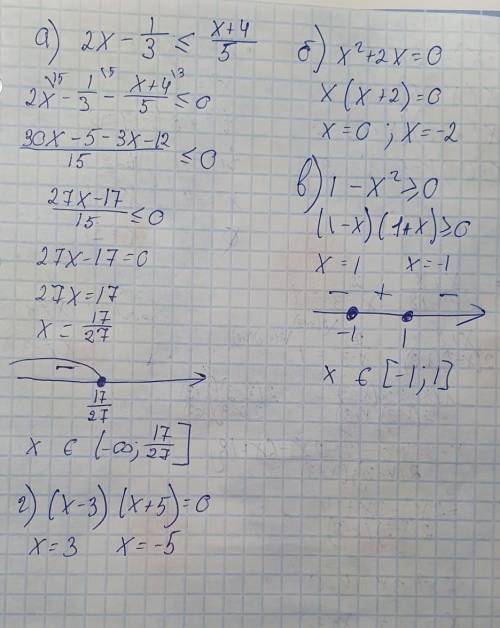 а) 2x - 1/3 ≤ (x+4)/5
2x\15 - 1/3\5 - (x+4)/5\3 ≤ 0
(30x - 5 - 3x - 12)/15 ≤ 0
(27x - 17)/15 ≤ 0
27x - 17 = 0
27x = 17
x = 17/27
-
17/27
x ∈ (-∞; 17/27]
г) (x-3) (x+5) = 0
x = 3 x = -5
б) x² + 2x = 0
x (x+2) = 0
x = 0 ; x = -2
в) 1 - x² ≥ 0
(1-x) (1+x) ≥ 0
x = 1 x = -1
- + -
-1 1
x ∈ [-1; 1]